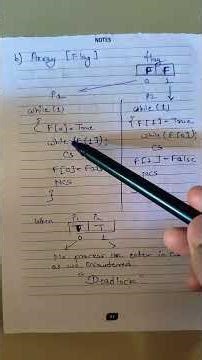 NOTES
b) Array [Flag]
flag
F F
0 1
P1
P2
while(1)
{ F[0]=True
while (F[1]);
CS
F[0]=False
NCS
while(1)
{ F[1]=True
while(F[0]);
CS
F[1]=False
NCS
When
P1 P2
T T
0 1
No process can enter in
as we encountered
"Deadlock"